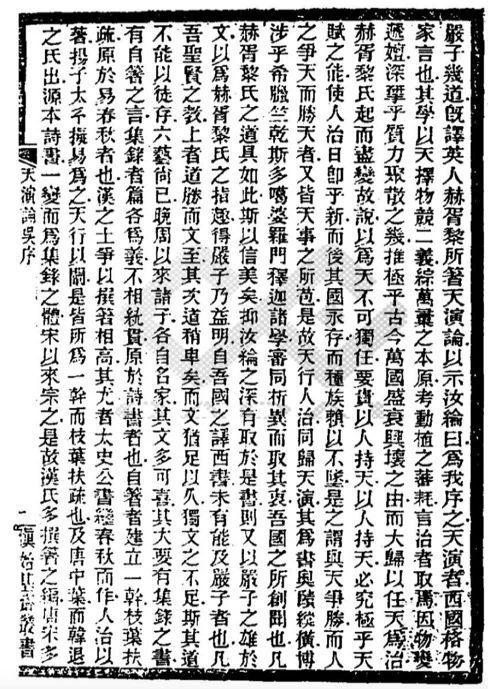 嚴子幾道既譯英人赫胥黎所著天演論以示汝綸曰爲我序之天演者西國格物
家言也其學以天擇物競二義綜萬彙之本原考動植之蕃耗言治者取焉因物變
遞嬗深揅乎質力聚散之幾推極乎古今萬國盛衰興壞之由而大歸以任天爲治
赫胥黎氏起而盡變故說以爲天不可獨任要貴以人持天以人持天必究極乎天
賦之能使人治日卽乎新而後其國永存而種族賴以不墜是之謂與天爭勝而人
之爭天而勝天者又皆天事之所苞是故天行人治同歸天演其爲書奧賾縱橫博
涉乎希臘竺乾斯多噶婆羅門釋迦諸學審同析異而取其衷吾國之所創聞也凡
赫胥黎氏之道具如此斯以信美矣抑汝綸之深有取於是書則又以嚴子之雄於
文以爲赫胥黎氏之指趣得嚴子乃益明自吾國之譯西書未有能及嚴子者也凡
吾聖賢之敎上者道勝而文至其次道稍卑矣而文猶足以久獨文之不足斯其道
不能以徒存六藝尙已晚周以來諸子各自名家其文多可喜其大要有集錄之書
有自著之言集錄者篇各爲義不相統貫原於詩書者也自著者建立一榦枝葉扶
疏原於易春秋者也漢之士爭以撰著相高其尤者太史公書繼春秋而作人治以
著揚子太玄擬易爲之天行以闡是皆所爲一榦而枝葉扶疏也及唐中葉而韓退
之氏出源本詩書一變而爲集錄之體宋以來宗之是故漢氏多撰著之編唐宋多
天演論吳序
一
慎始基齋叢書